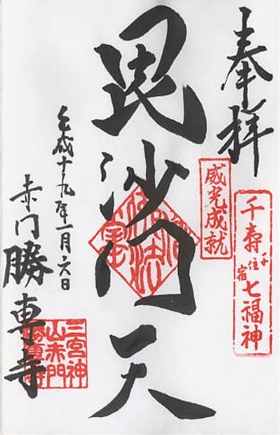 奉拝
千寿七福神
千住宿
威光成就
毘沙門天
平成十九年一月六日
赤門勝専寺
三宮神
山赤門